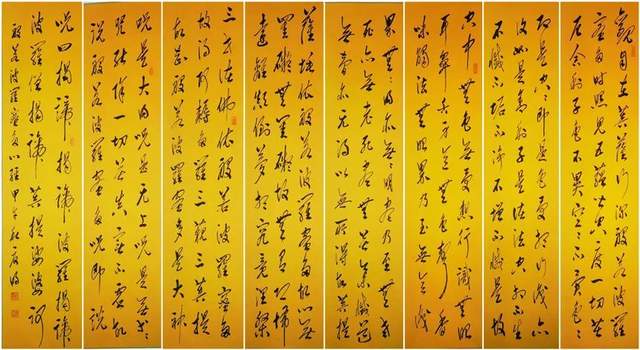 觀自在菩薩行深般若波羅
蜜多時照見五蘊皆空度一切苦
厄舍利子色不異空空不異色
即是空空即是色受想行識亦
復如是舍利子是諸法空相不生
不滅不垢不淨不增不減是故
空中無色無受想行識無眼
耳鼻舌身意無色聲香
味觸法無眼界乃至無意識
界無無明亦無無明盡乃至無老
死亦無老死盡無苦集滅道
無智亦无得以無所得故菩提
薩埵依般若波羅蜜多故心無
罣礙無罣礙故無有恐怖
遠離顛倒夢想究竟涅槃
三世諸佛依般若波羅蜜多
故得阿耨多羅三藐三菩提
故知般若波羅蜜多是大神
咒是大明咒是无上咒是無等等
咒能除一切苦真實不虛故
說般若波羅蜜多咒即說
咒曰揭諦揭諦波羅揭諦
波羅僧揭諦菩提娑婆訶
般若波羅蜜多心經甲午秋